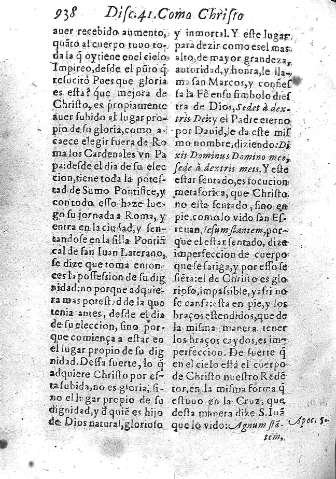 938 Disc.41. Como Christo
auer recebido aumento,
quāto al cuerpo tuvo to-
da la q̄ oy tiene en el cielo
Impireo, desde el pūto q̄
resucitó Pues que gloria
es esta? que mejora de
Christo, es propiamente
auer subido al lugar pro-
pio de su gloria, como a-
caece elegir fuera de Ro-
ma los Cardenales vn Pa
pa: desde el dia de su elec-
cion, tiene toda la potes-
tad de Sumo Pontifice, y
con todo esso haze lue-
go su jornada a Roma, y
entra en la ciudad, y sen-
tandose en la silla Pontifi-
cal de san Iuan Laterano,
se dize que toma enton-
ces la possession de su dig
nidad: no porque adquie-
ra mas potestad de la que
tenia antes, desde el dia
de su eleccion, sino por-
que comiença a estar en
el lugar propio de su dig
nidad. Dessa suerte, lo q̄
adquiere Christo por es-
ta subida, no es gloria, si-
no el lugar propio de su
dignidad, y d̄ quiē es hijo
de Dios natural, glorioso
y inmortal. Y este lugar,
para dezir como es el mas
alto, de mayor grandeza,
autoridad, y honra, le lla-
ma san Marcos, y confies
sa la Fè en su simbolo dies
tra de Dios, Sedet à dex-
tris Dei: y el Padre eterno
por Dauid, le da este mis
mo nombre, diziendo: Di
xit Dominus Domino meo,
sede à dextris meis. Y este
estar sentado, es locucion
metaforica, que Christo
no està sentado, sino en
pie, como lo vido san Es-
teuan, Iesum stantem, por-
que el estar sentado, dize
imperfeccion de cuerpo
que se fatiga, y por esso se
siēta: el de Christo es glo-
rioso, impassible, y assi no
se cansa: està en pie, y los
braços estendidos, que de
la misma manera tener
los braços caydos, es im-
perfeccion. De suerte q̄
en el cielo està el cuerpo
de Christo nuestro Redē-
tor, en la misma forma q̄
estuuo en la Cruz, que
desta manera dize S. Iuā
que lo vido: Agnum stā-
Apoc. 5.
tem,